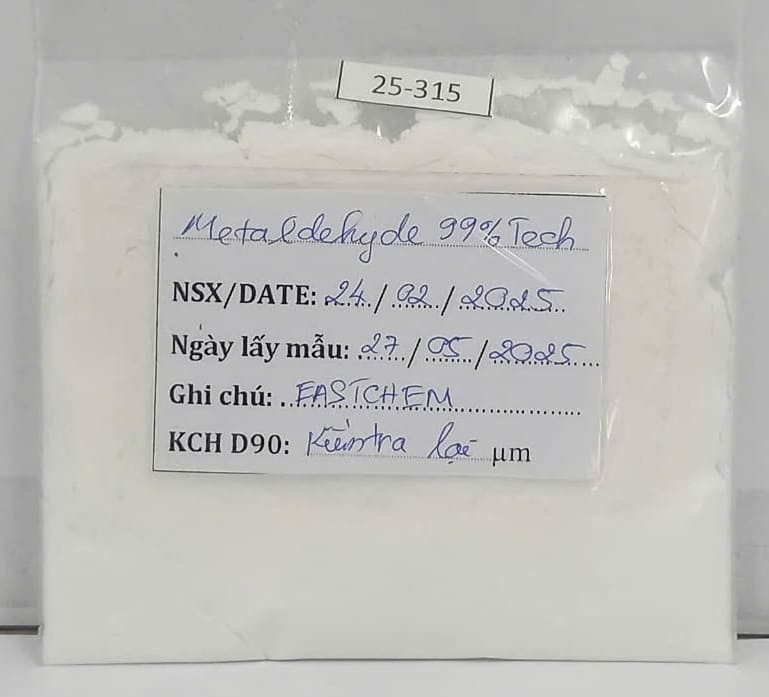 25-315
Metaldehyde 99% Tech
NSX/DATE: 24/02/2025
Ngày lấy mẫu: 27/05/2025
Ghi chú: EASTCHEM
KCH D90: Kiểm tra lại µm